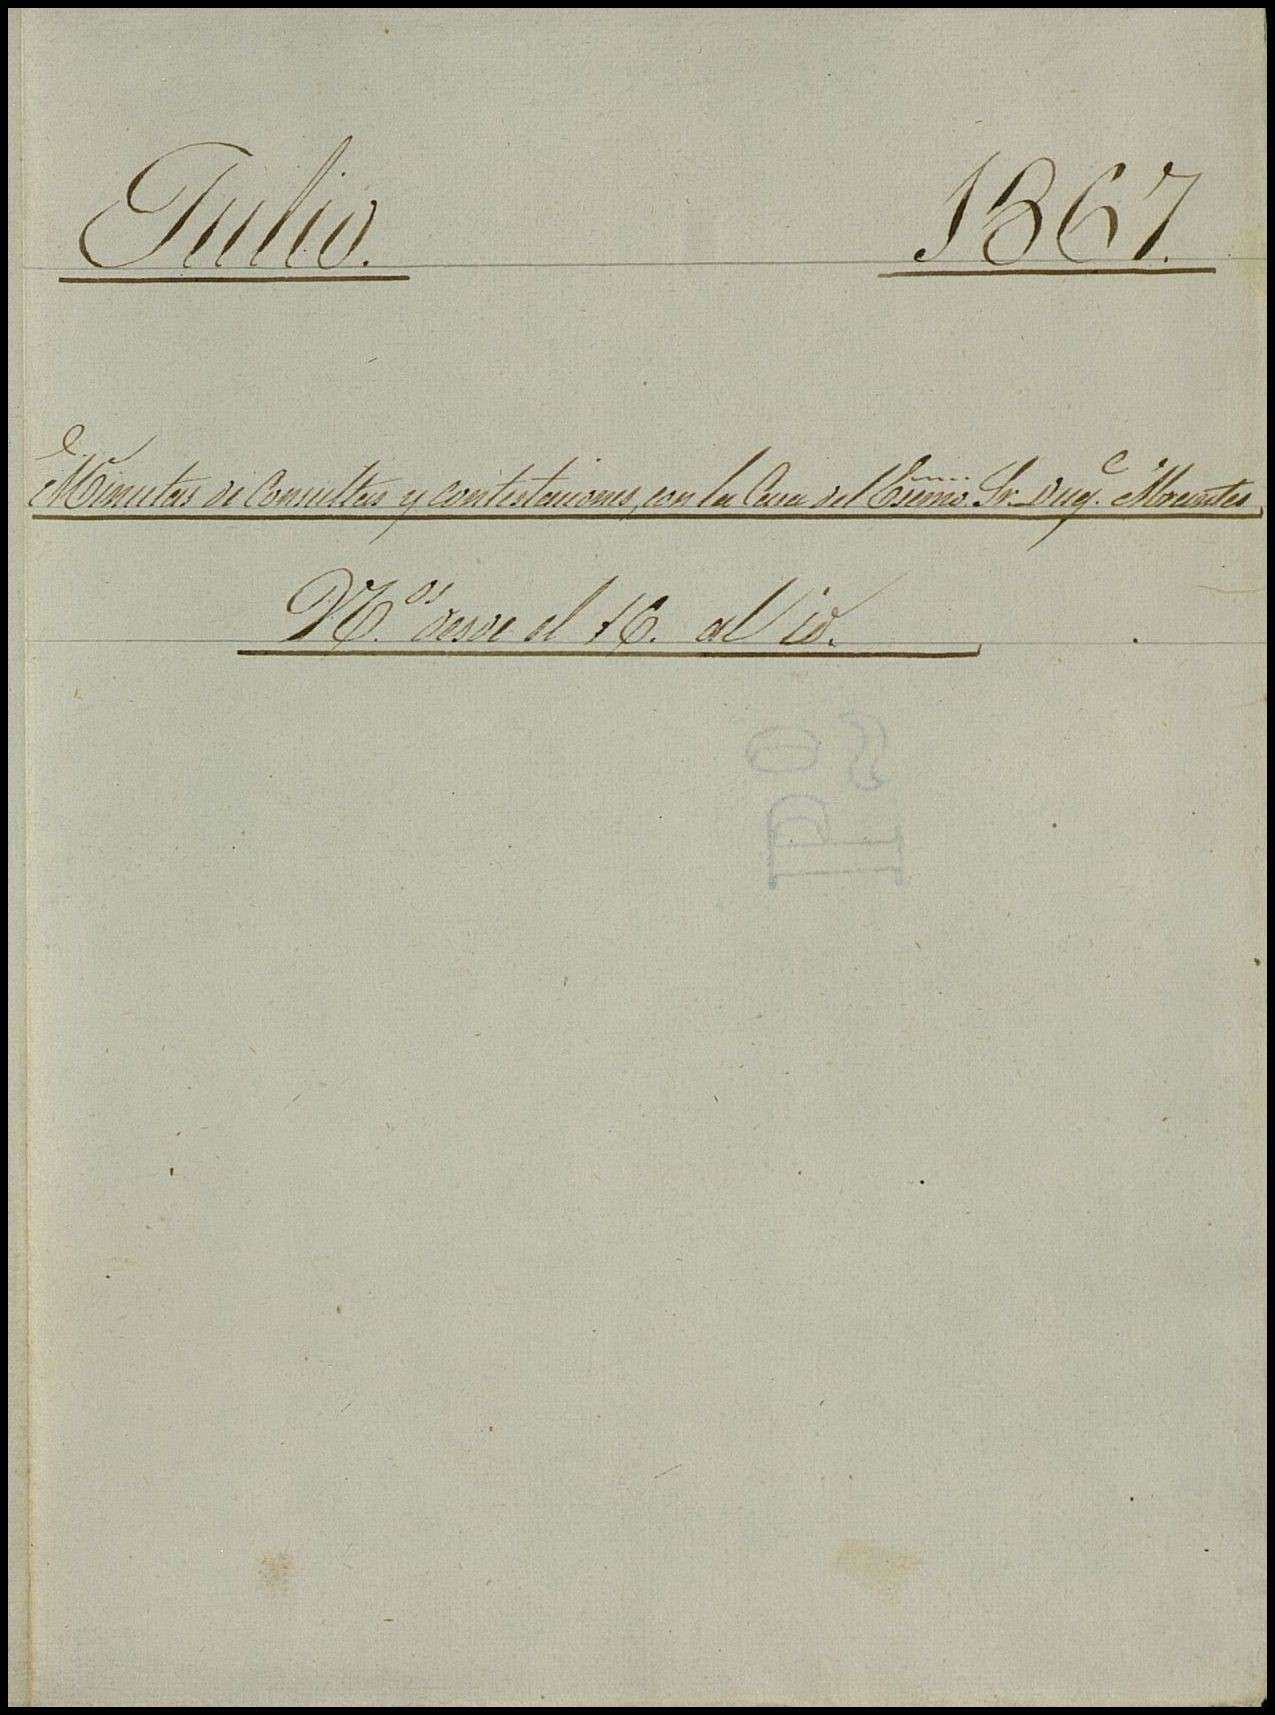 Julio. 1867.
Minutas de Consultas y contestaciones, con la Casa del Exmo. Sr. Duq.e
N.os desde el 16. al id.